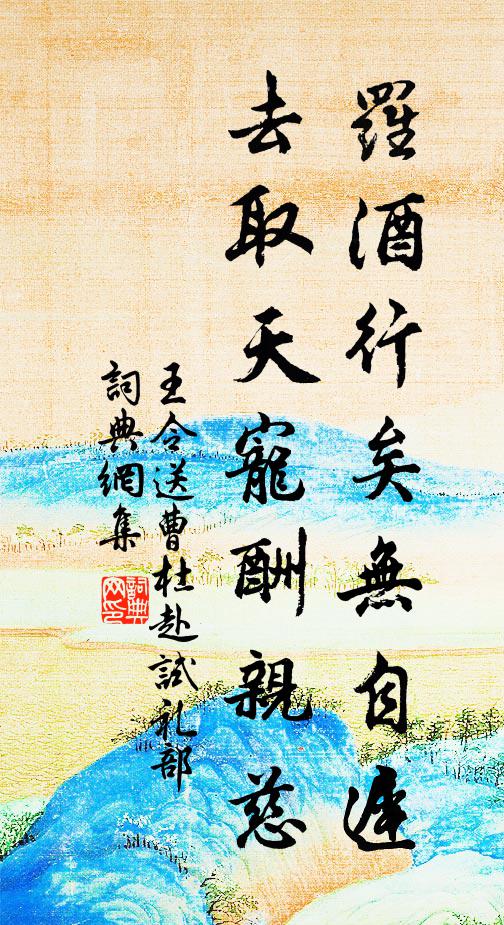 羅酒行矣無自遲
去取天寵酬親慈
王令送曹杜赴試礼部
詞典網集
詞典